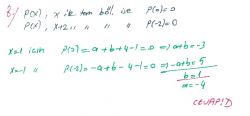 8-) P(x), x ile tam böl. ise P(0)=0
P(x), x+2 " " " P(-2)=0
x=1 için P(2)=a+b+4-1=0 ⇒ a+b=-3
x=-1 " P(-2)=-a+b-4-1=0 ⇒ -a+b=5
b=1
a=-4
CEVAP: D